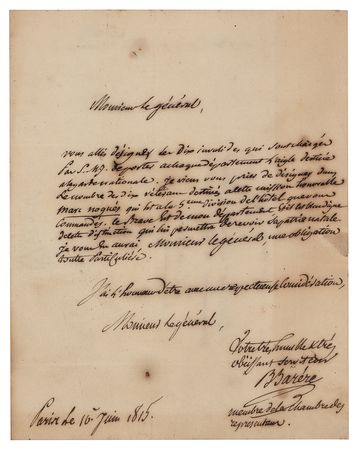 Monsieur le général,
vous allés désigner les Dix invalides qui sont chargés
Par S. M. de porter a chaque département l'aigle destinée
a la garde nationale. Je viens vous prier de désigner dans
le nombre de dix vétérans destinés a cette mission honorable
Marc noguès qui est a la 5eme Division de l'hotel que vous
commandés. le Brave est de mon département
de cette distinction qui lui permettra de revoir sa patrie natale.
Je vous en aurai, Monsieur le général, une obligation
toute Particulière.
J'ai l'honneur d'être avec une respectueuse considération,
Monsieur le général,
Votre très humble & très
obéissant serviteur
B Barère
membre de la Chambre des
représentans.
Paris le 1er Juin 1815.